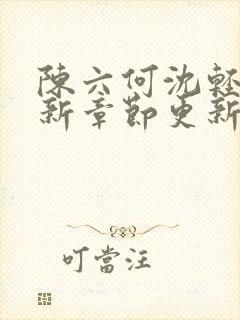 陳六何沈輕
新章節更新
叮當汪